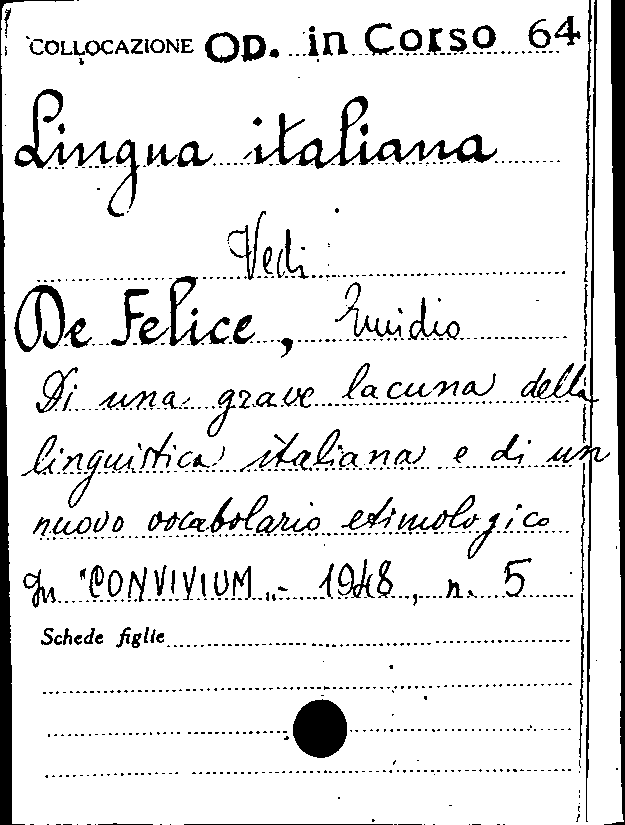 COLLOCAZIONE OD. in Corso 64
Lingua italiana
Vedi
De Felice, Emidio
Di una grave lacuna della
linguistica italiana e di un
nuovo vocabolario etimologico
In "CONVIVIUM„ - 1948, n. 5
Schede figlie